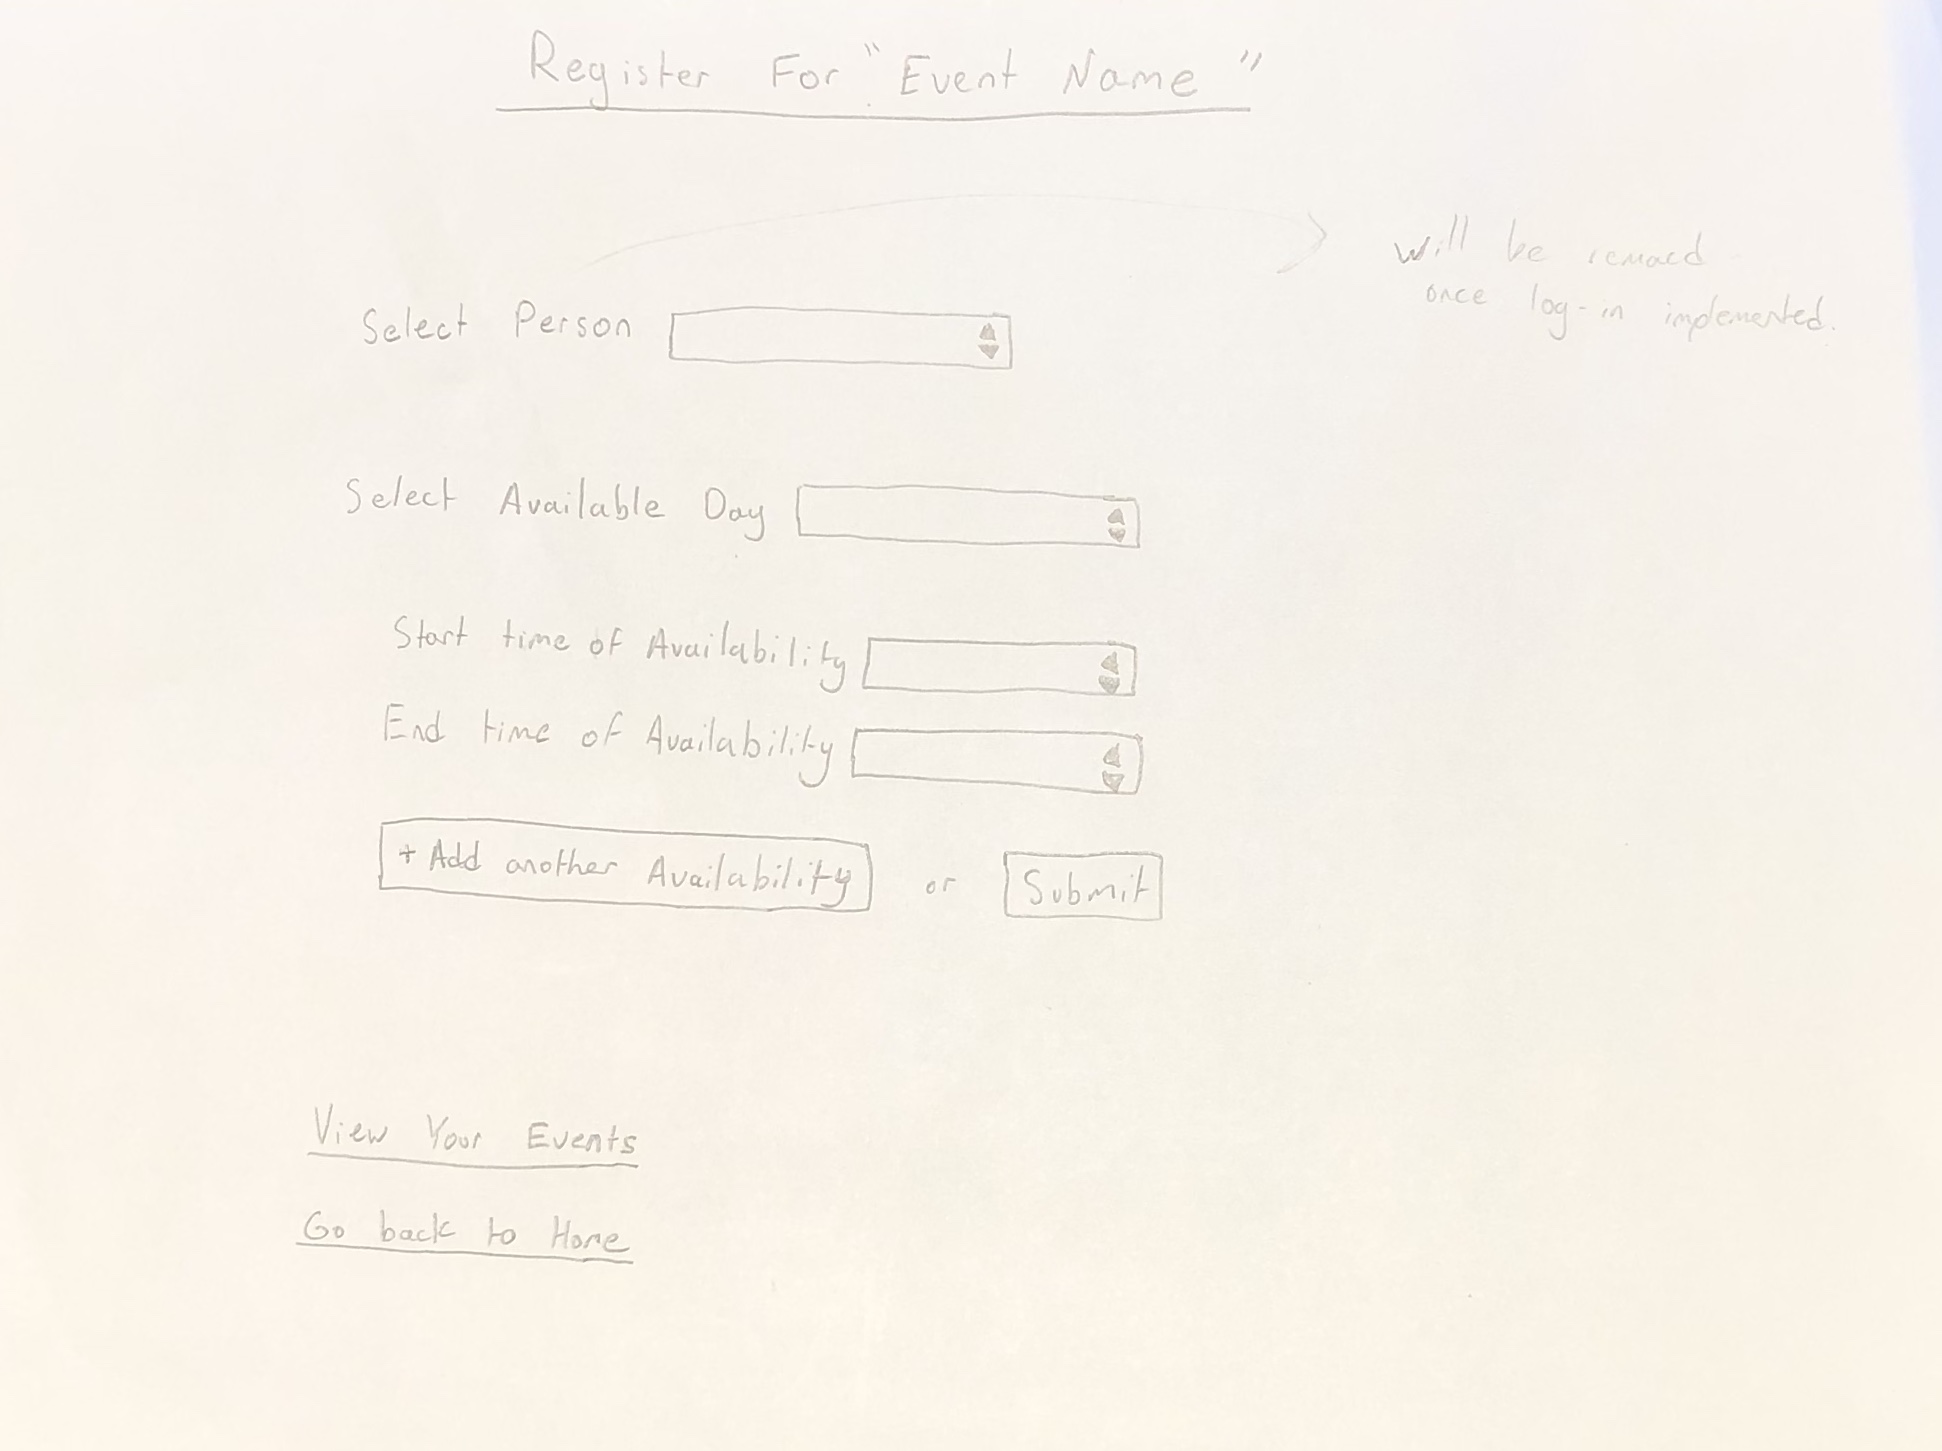 Register For "Event Name"
will be
once log-in implemented.
Select Person
Select Available Day
Start time of Availability
End time of Availability
+ Add another Availability or Submit
View Your Events
Go back to Home